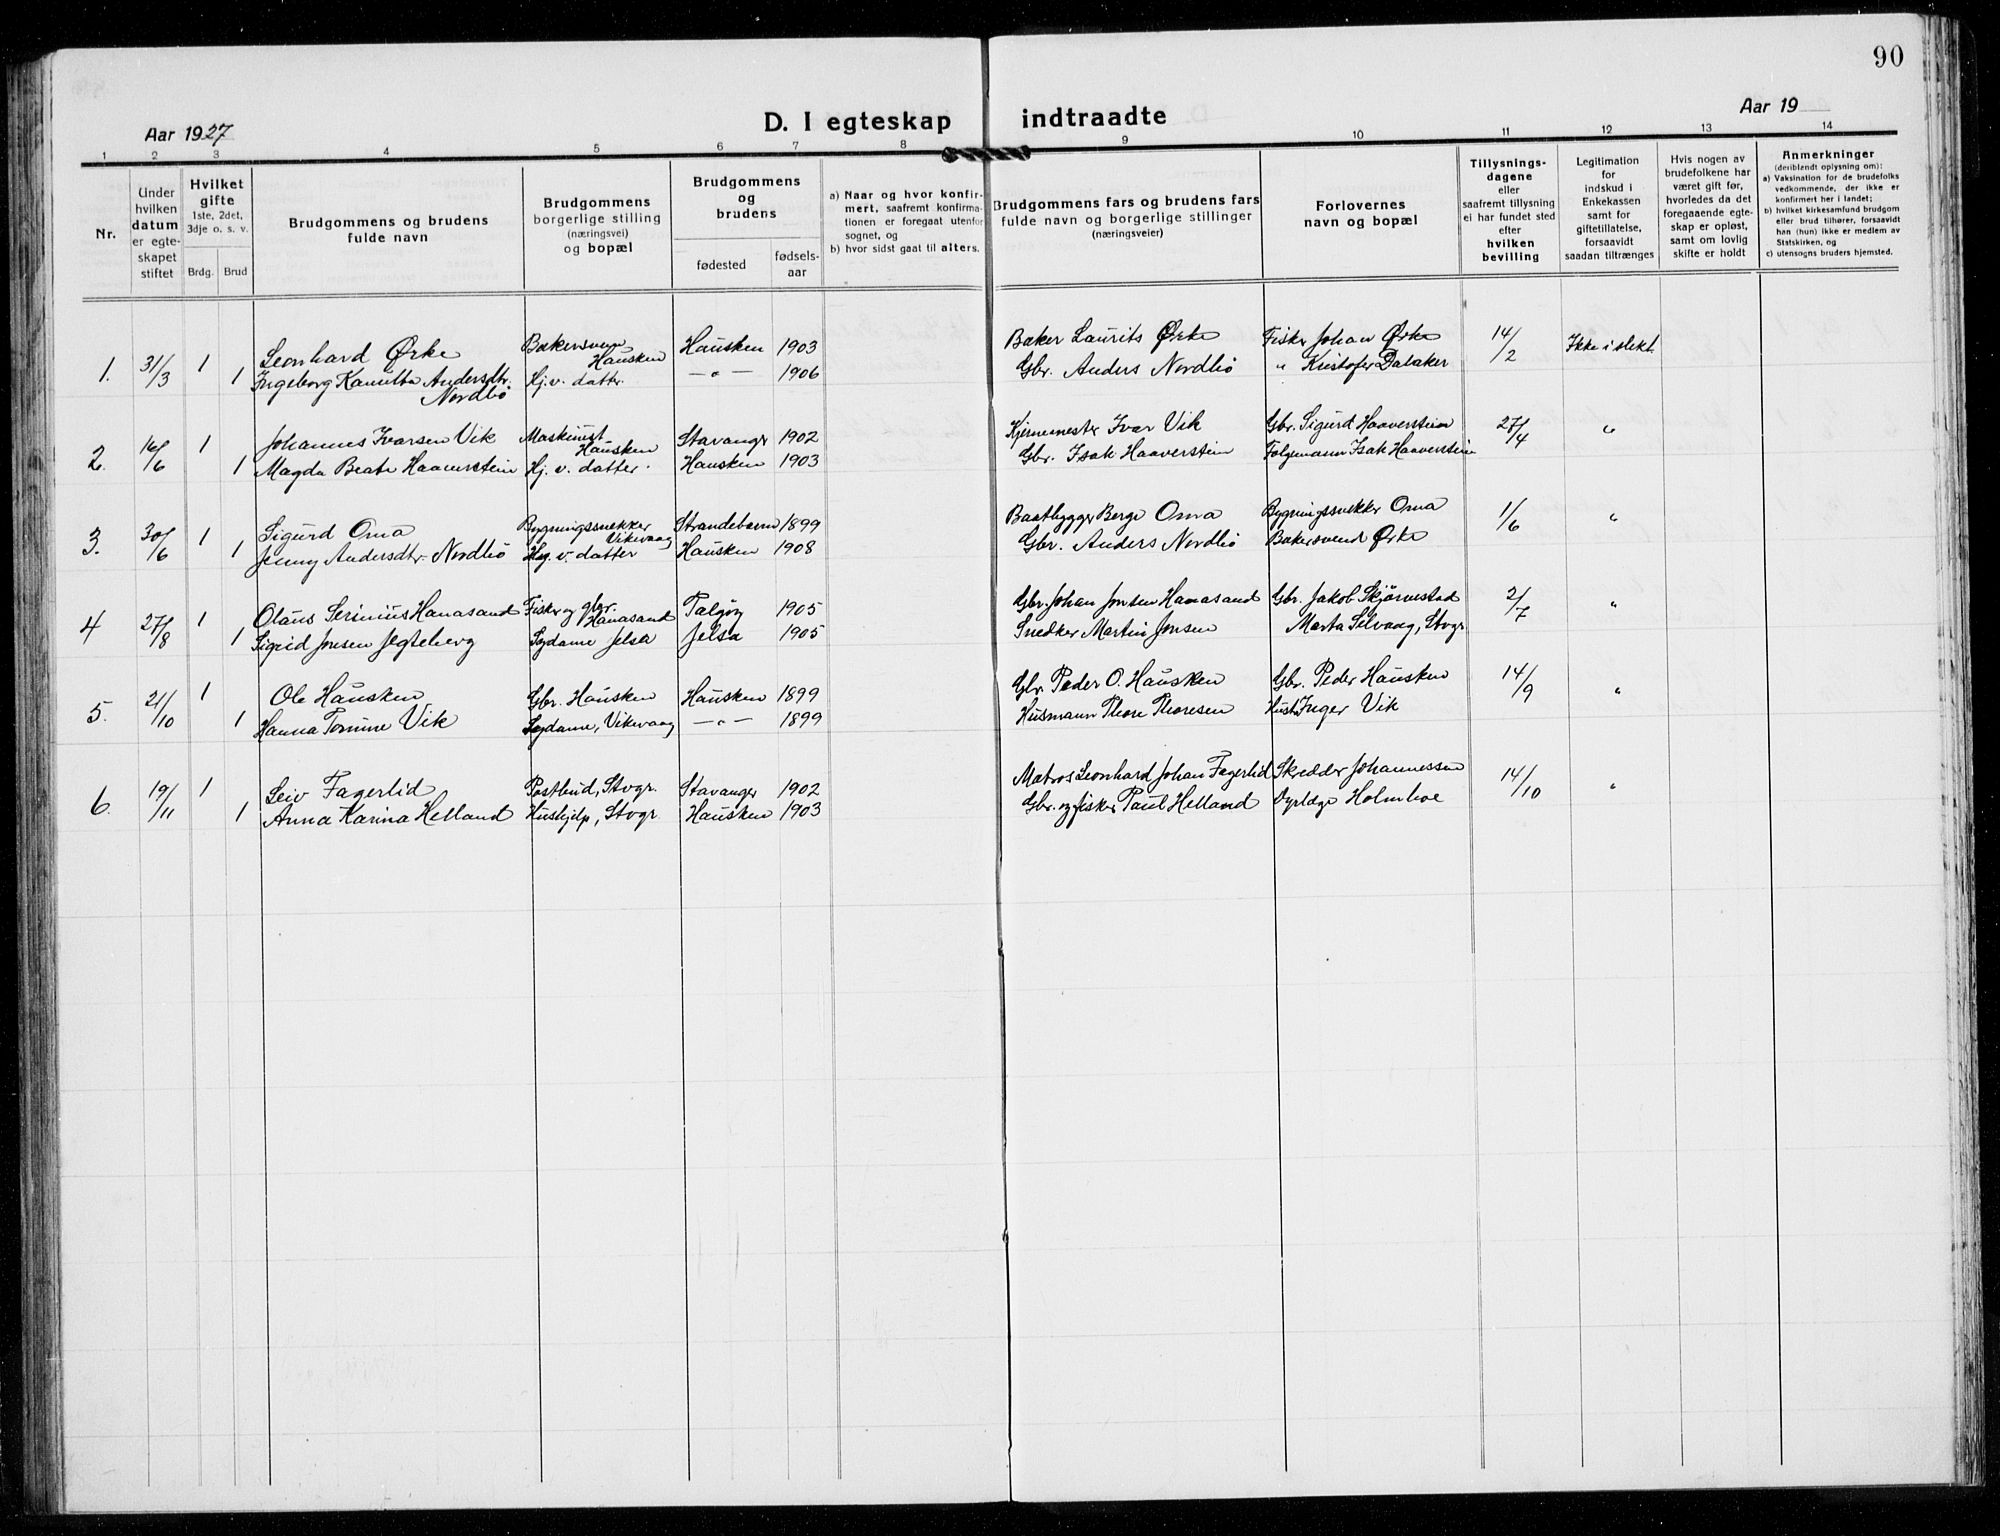 90
Aar 1927
D. I egteskap indtraadte
Aar 19
1 2 3 4 5 6 7 8 9 10 11 12 13 14
Nr.
Under
hvilken
datum
er egte-
skapet
stiftet
Hvilket
gifte
1ste, 2det,
3dje o. s. v.
Brdg. Brud
Brudgommens og brudens
fulde navn
Brudgommens
borgerlige stilling
(næringsvei)
og bopæl
Brudgommens
og
brudens
fødested
fødsels-
aar
a) Naar og hvor konfir-
mert, saafremt konfirma-
tionen er foregaat utenfor
sognet, og
b) hvor sidst gaat til alters.
Brudgommens fars og brudens fars
fulde navn og borgerlige stillinger
(næringsveier)
Forlovernes
navn og bopæl
Tillysnings-
dagene
eller
saafremt tillysning
ei har fundet sted
efter
hvilken
bevilling
Legitimation
for
indskud i
Enkekassen
samt for
giftetillatelse,
forsaavidt
saadan tiltrænges
Hvis nogen av
brudefolkene har
været gift før,
hvorledes da det
foregaaende egte-
skap er opløst,
samt om lovlig
skifte er holdt
Anmerkninger
(deriblendt oplysning om):
a) Vaksination for de brudefolks
vedkommende, der ikke er
konfirmert her i landet;
b) hvilket kirkesamfund brudgom
eller brud tilhører, forsaavidt
han (hun) ikke er medlem av
Statskirken, og
c) utensogns bruders hjemsted.
1. 31/3 1 Leonhard Ørke Bakersvenn Hausken Hausken 1903 Baker Laurits Ørke Fisker Johan Ørke 14/2 Ikke i slekt
1 Ingeborg Kamilla Andersdtr. Nordbö Hj. v. datter — " — 1906 Gbr. Anders Nordbö " Kristofer Dalaker
2. 16/6 1 Johannes Ivarsen Vik Maskinist Hausken Stavanger 1902 Kjernemester Ivar Vik Gbr. Sigurd Haaverstein 27/4 "
1 Magda Beate Haaverstein Hj. v. datter. Hausken 1903 Gbr. Isak Haaverstein Folgemann Isak Haaverstein
3. 30/6 1 Sigurd Oma Bygningssnekker Vikevaag Strandebarm 1899 Baatbygger Berge Oma Bygningssnekker Oma 1/6 "
1 Jenny Andersdtr. Nordbö Hj. v. datter Hausken 1908 Gbr. Anders Nordbö Bakersvend Ørke
4 27/8 1 Olaus Serinius Hanasand Fisker og gbr. Hanasand Talgöy 1905 Gbr. Johan Jonsen Hanasand Gbr. Jakob Skjørvestad 2/7 "
1 Sigrid Jonsen Jegteberg Sydame Jelsa Jelsa 1905 Snedker Martin Jonsen Marta Selvaag, Stvgr.
5. 21/10 1 Ole Hausken Gbr. Hausken Hausken 1899 Gbr. Peder O. Hausken Gbr. Peder Hausken 14/9 "
1 Hanna Tomine Vik Sydame, Vikevaag — " — 1899 Husmann Thore Thoresen Hust. Inger Vik
6. 19/11 1 Leiv Fagerlid Postbud, Stvgr. Stavanger 1902 Matros Leonhard Johan Fagerlid Skredder Johannessen 14/10 "
1 Anna Karina Helland Hushjelp, Stvgr. Hausken 1903 Gbr. og fisker Paul Helland Dyrlæge Holmboe